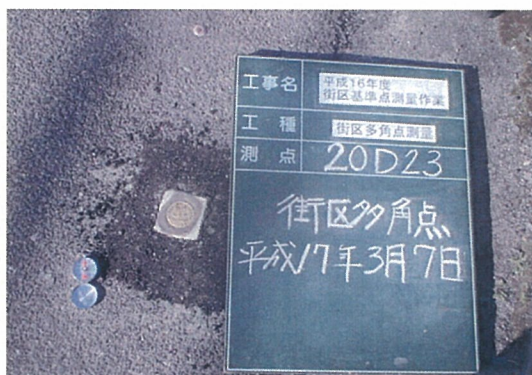 工事名 平成16年度
街区基準点測量作業
工種 街区多角点測量
測点 20D23
街区多角点
平成17年3月7日